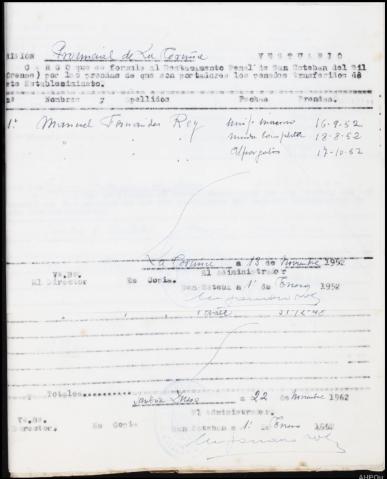 RISION Provincial de La Coruña VESTUARIO
CARGO que se formula al Destacamento Penal de San Esteban del Sil
(Orense) por las prendas de que son portadores los penados transferidos de
ste Establecimiento.
nº Nombres y apellidos Fechas Prendas.
1º Manuel Fernandez Rey 16-9-52
Muda completa 18-8-52
Alpargatas 17-10-52
La Coruña a 13 de Noviembre 1952
Vº.Bº. El Administrador
El Director Es Copia. San Esteban a 1º de Enero 1952
Totales
a 22 de 1962
Vº.Bº. El Administrador.
Director. Es Copia San Esteban a 1º de Enero 1952
AHPOu